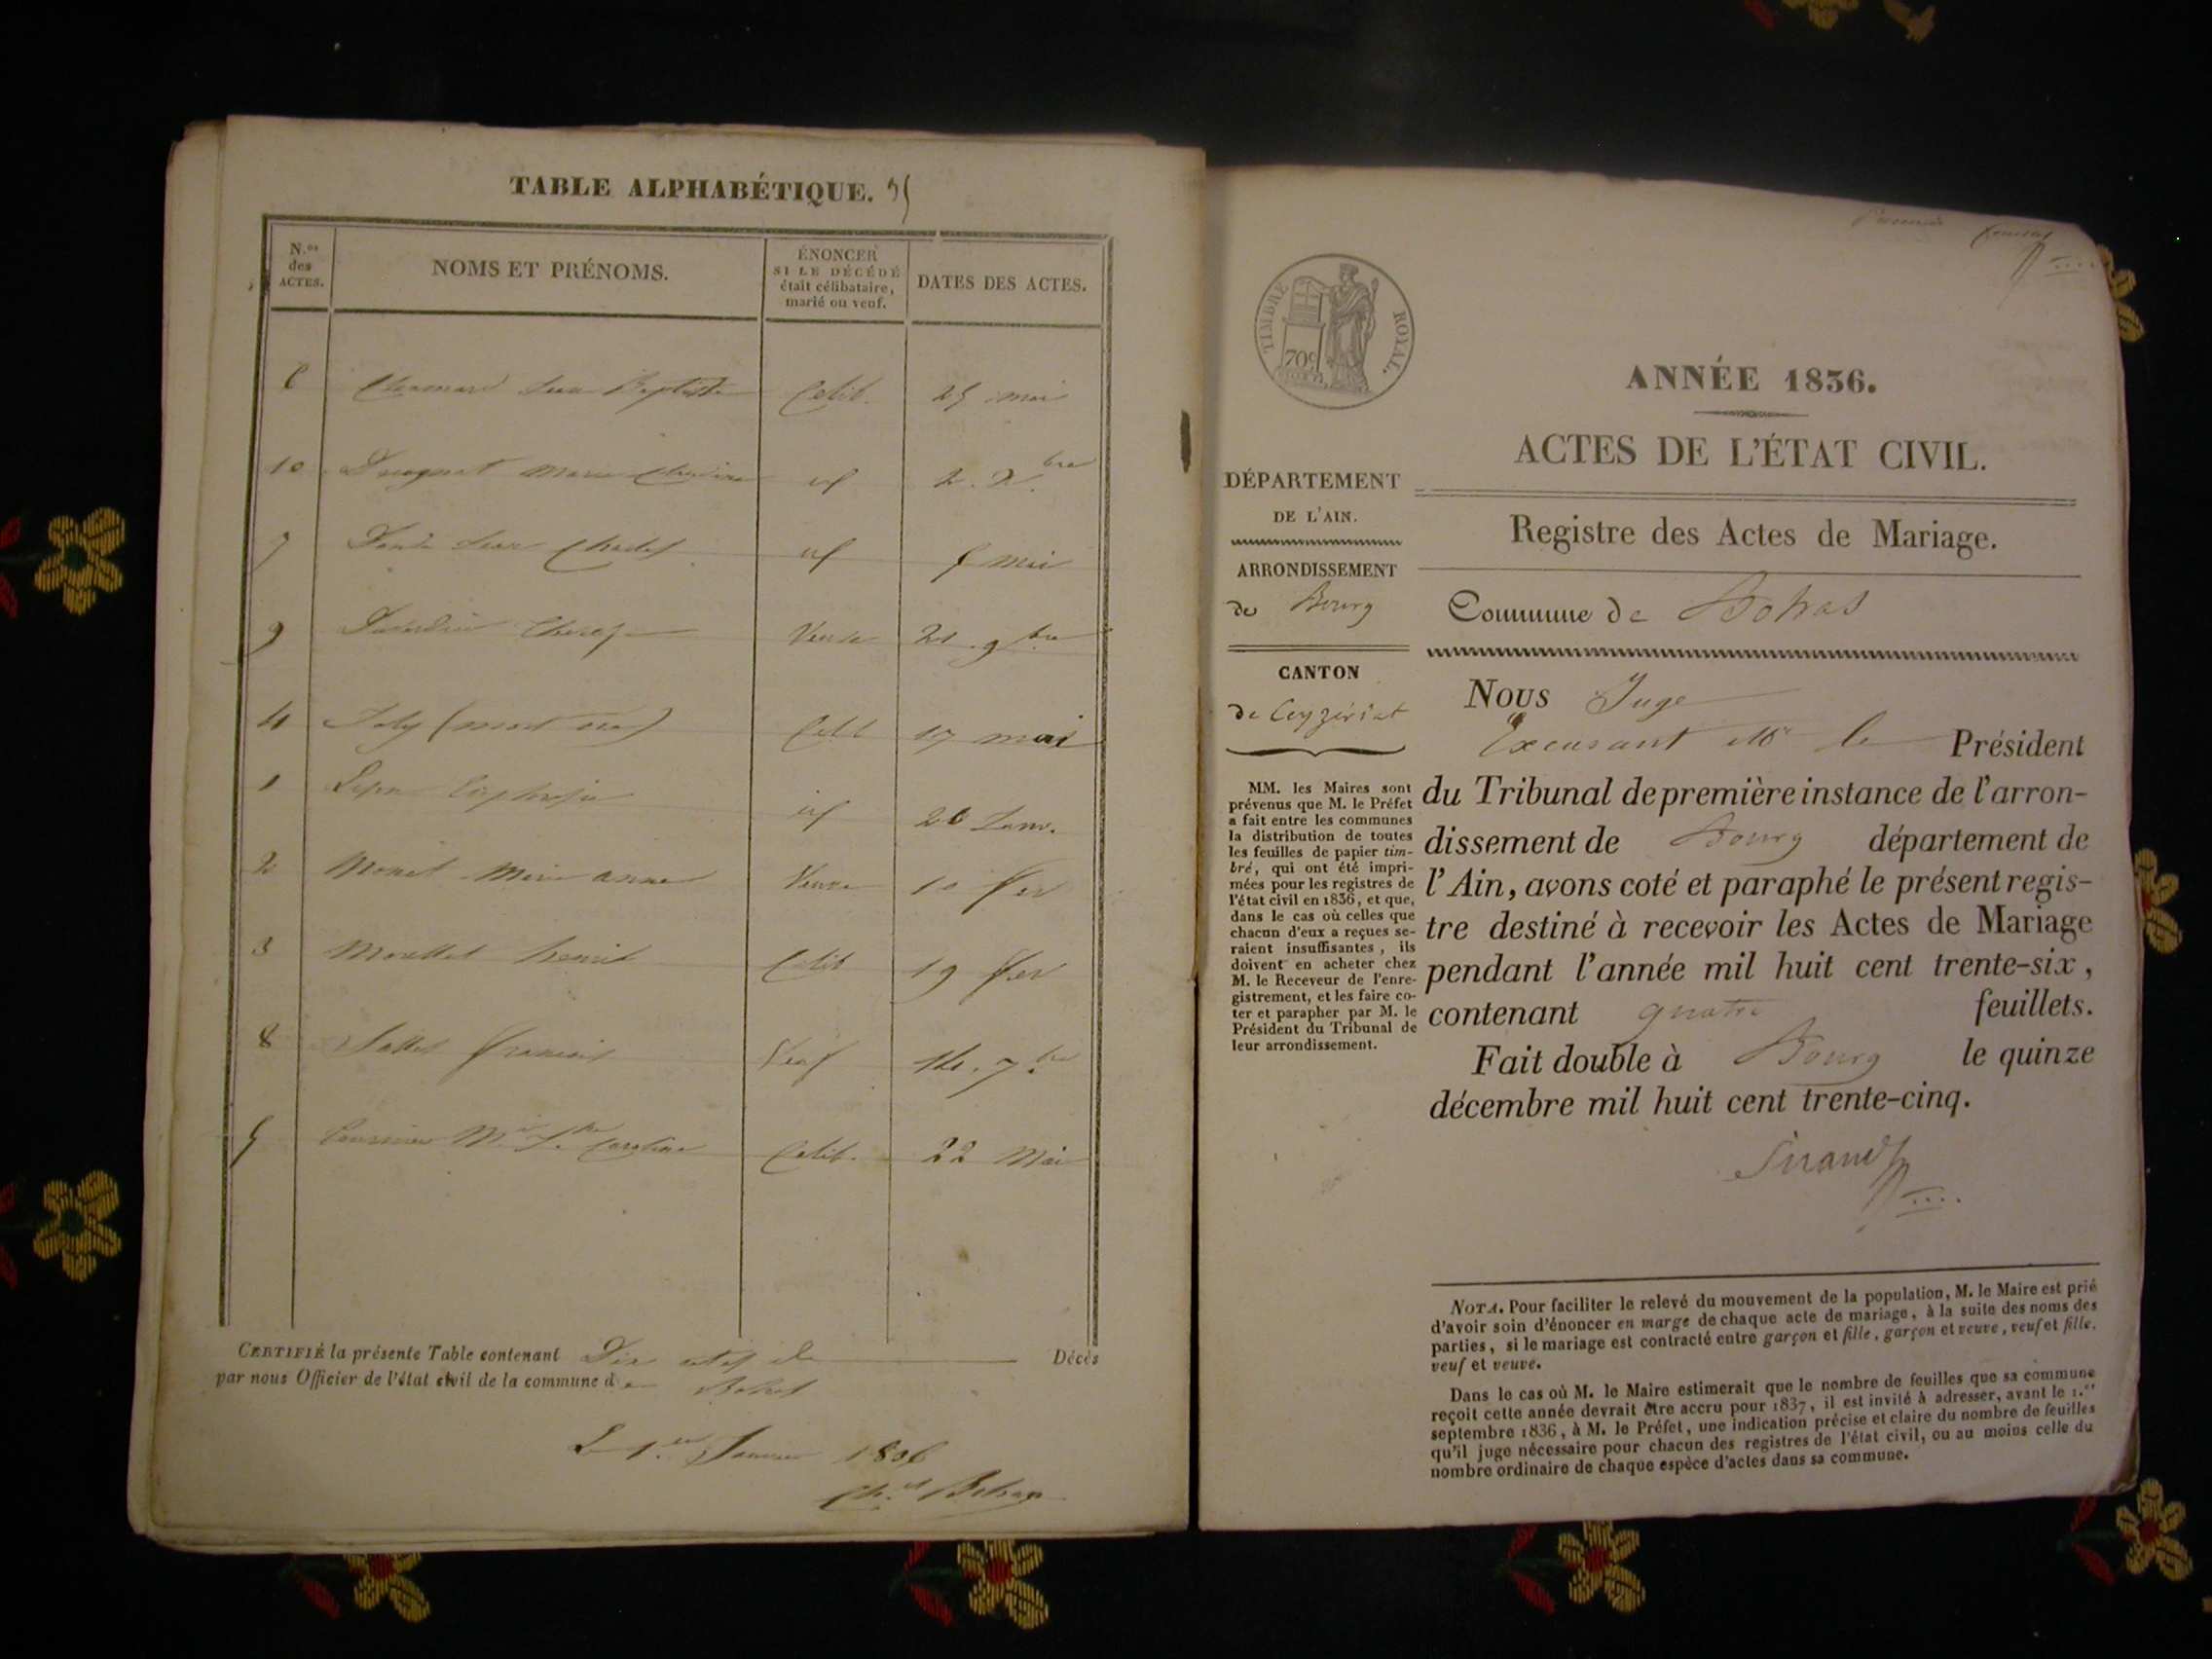 TABLE ALPHABÉTIQUE. 35
N.os des ACTES.
NOMS ET PRÉNOMS.
ÉNONCER
SI LE DÉCÉDÉ
était célibataire,
marié ou veuf.
DATES DES ACTES.
6 Jean Baptiste Célib. 25 mai
10 Marie Claudine id 2. X.bre
7 Jean Charles id 5 mai
9 Veuve 21 9bre
4 Joly (mort né) Célib 17 mai
1 id 26 Janv.
2 Monet Marie anne Veuve 10 fev
3 Benoit Célib 19 fev
8 françois Veuf 14. 7.bre
5 Caroline Célib. 22 Mai
CERTIFIÉ la présente Table contenant Dix actes de Décès
par nous Officier de l'état civil de la commune de Bohas
Le 1.er Janvier 1836
TIMBRE ROYAL.
70c
ANNÉE 1836.
ACTES DE L'ÉTAT CIVIL.
DÉPARTEMENT
DE L'AIN.
ARRONDISSEMENT
de Bourg
CANTON
de Ceyzériat
MM. les Maires sont
prévenus que M. le Préfet
a fait entre les communes
la distribution de toutes
les feuilles de papier tim-
bré, qui ont été impri-
mées pour les registres de
l'état civil en 1836, et que,
dans le cas où celles que
chacun d'eux a reçues se-
raient insuffisantes, ils
doivent en acheter chez
M. le Receveur de l'enre-
gistrement, et les faire co-
ter et parapher par M. le
Président du Tribunal de
leur arrondissement.
Registre des Actes de Mariage.
Commune de Bohas
Nous Juge
Excusant Mr le Président
du Tribunal de première instance de l'arron-
dissement de Bourg département de
l'Ain, avons coté et paraphé le présent regis-
tre destiné à recevoir les Actes de Mariage
pendant l'année mil huit cent trente-six,
contenant quatre feuillets.
Fait double à Bourg le quinze
décembre mil huit cent trente-cinq.
Sirand
NOTA. Pour faciliter le relevé du mouvement de la population, M. le Maire est prié
d'avoir soin d'énoncer en marge de chaque acte de mariage, à la suite des noms des
parties, si le mariage est contracté entre garçon et fille, garçon et veuve, veuf et fille,
veuf et veuve.
Dans le cas où M. le Maire estimerait que le nombre de feuilles que sa commune
reçoit cette année devrait être accru pour 1837, il est invité à adresser, avant le 1.er
septembre 1836, à M. le Préfet, une indication précise et claire du nombre de feuilles
qu'il juge nécessaire pour chacun des registres de l'état civil, ou au moins celle du
nombre ordinaire de chaque espèce d'actes dans sa commune.